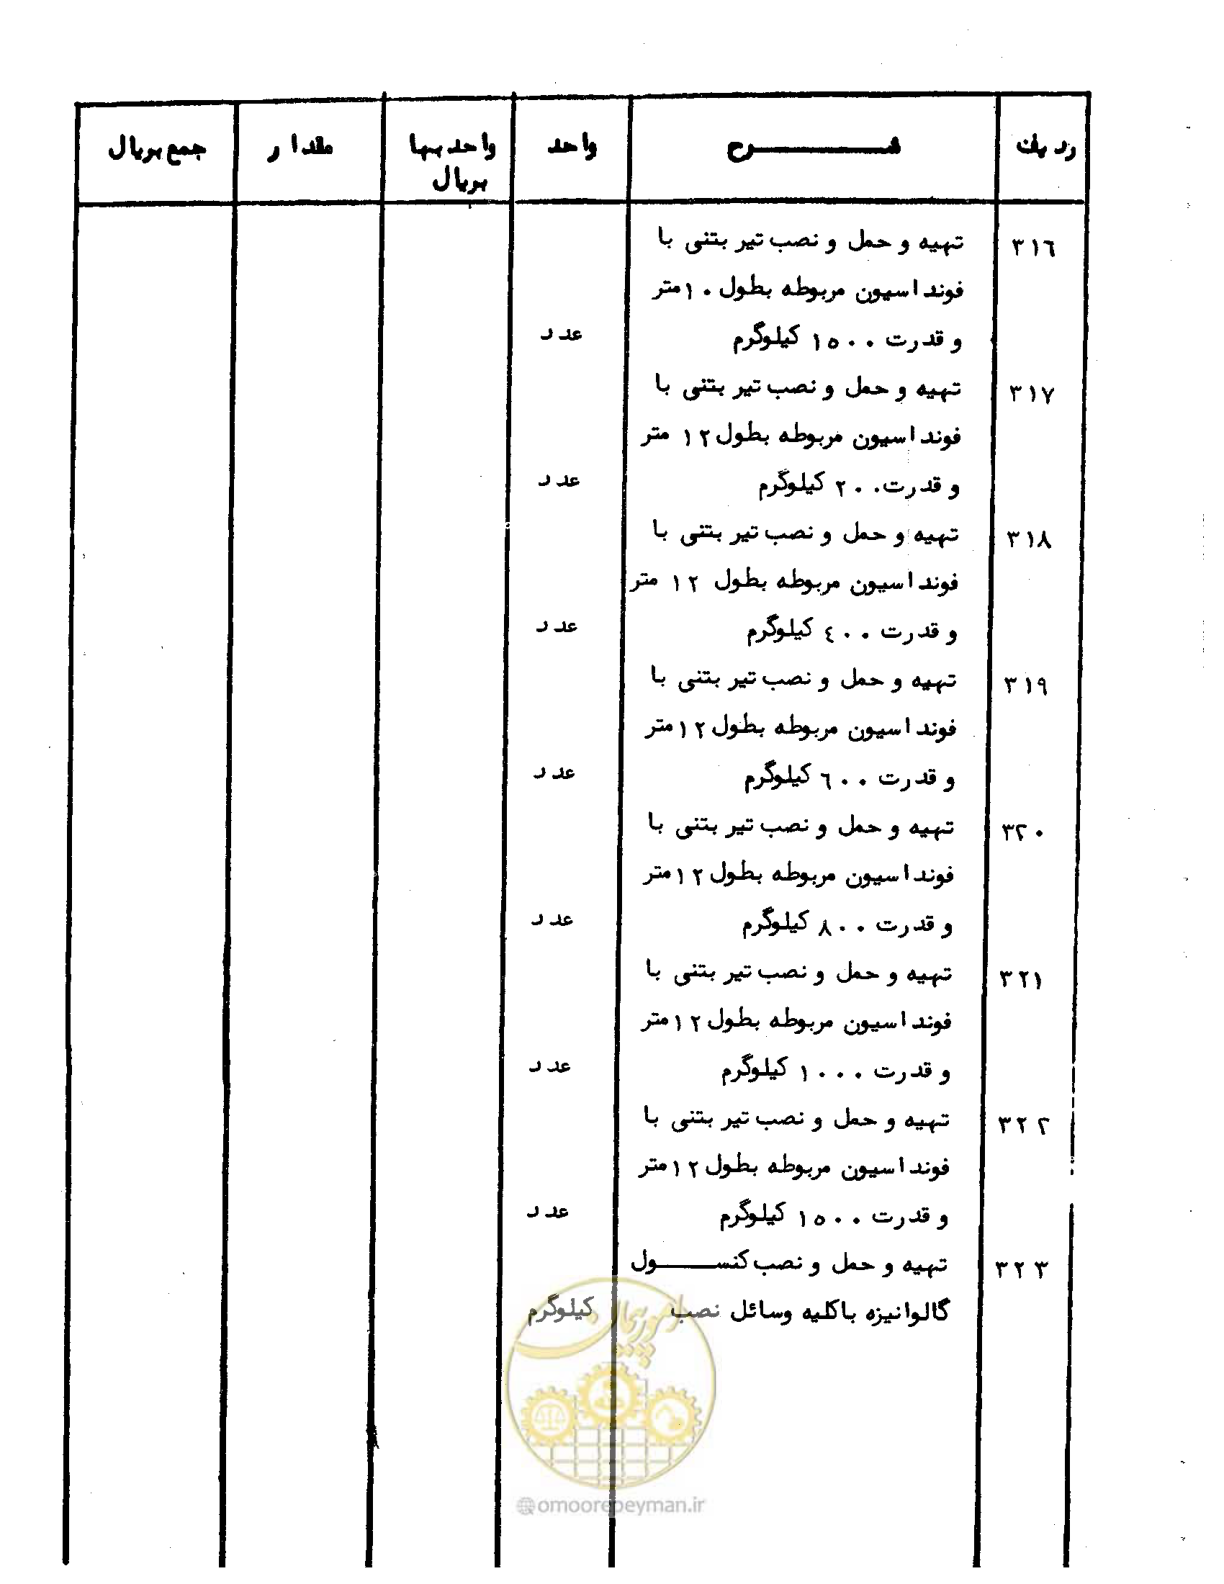 ردیف شــــرح واحد واحد بها مقدار جمع بریال
بریال
۳۱٦ تهیه و حمل و نصب تیر بتنی با
فونداسیون مربوطه بطول ۱۰ متر
و قدرت ۱۵۰۰ کیلوگرم عدد
۳۱۷ تهیه و حمل و نصب تیر بتنی با
فونداسیون مربوطه بطول ۱۲ متر
و قدرت ۲۰۰ کیلوگرم عدد
۳۱۸ تهیه و حمل و نصب تیر بتنی با
فونداسیون مربوطه بطول ۱۲ متر
و قدرت ٤۰۰ کیلوگرم عدد
۳۱۹ تهیه و حمل و نصب تیر بتنی با
فونداسیون مربوطه بطول ۱۲ متر
و قدرت ٦۰۰ کیلوگرم عدد
۳۲۰ تهیه و حمل و نصب تیر بتنی با
فونداسیون مربوطه بطول ۱۲ متر
و قدرت ۸۰۰ کیلوگرم عدد
۳۲۱ تهیه و حمل و نصب تیر بتنی با
فونداسیون مربوطه بطول ۱۲ متر
و قدرت ۱۰۰۰ کیلوگرم عدد
۳۲۲ تهیه و حمل و نصب تیر بتنی با
فونداسیون مربوطه بطول ۱۲ متر
و قدرت ۱۵۰۰ کیلوگرم عدد
۳۲۳ تهیه و حمل و نصب کنســـول
گالوانیزه باکلیه وسائل نصب کیلوگرم
امور پیمان
omoorepeyman.ir